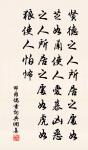 賢德之人所居之處如
芝如蘭使人愛慕凶惡
之人所居之處如虎如
狼使人怕怖